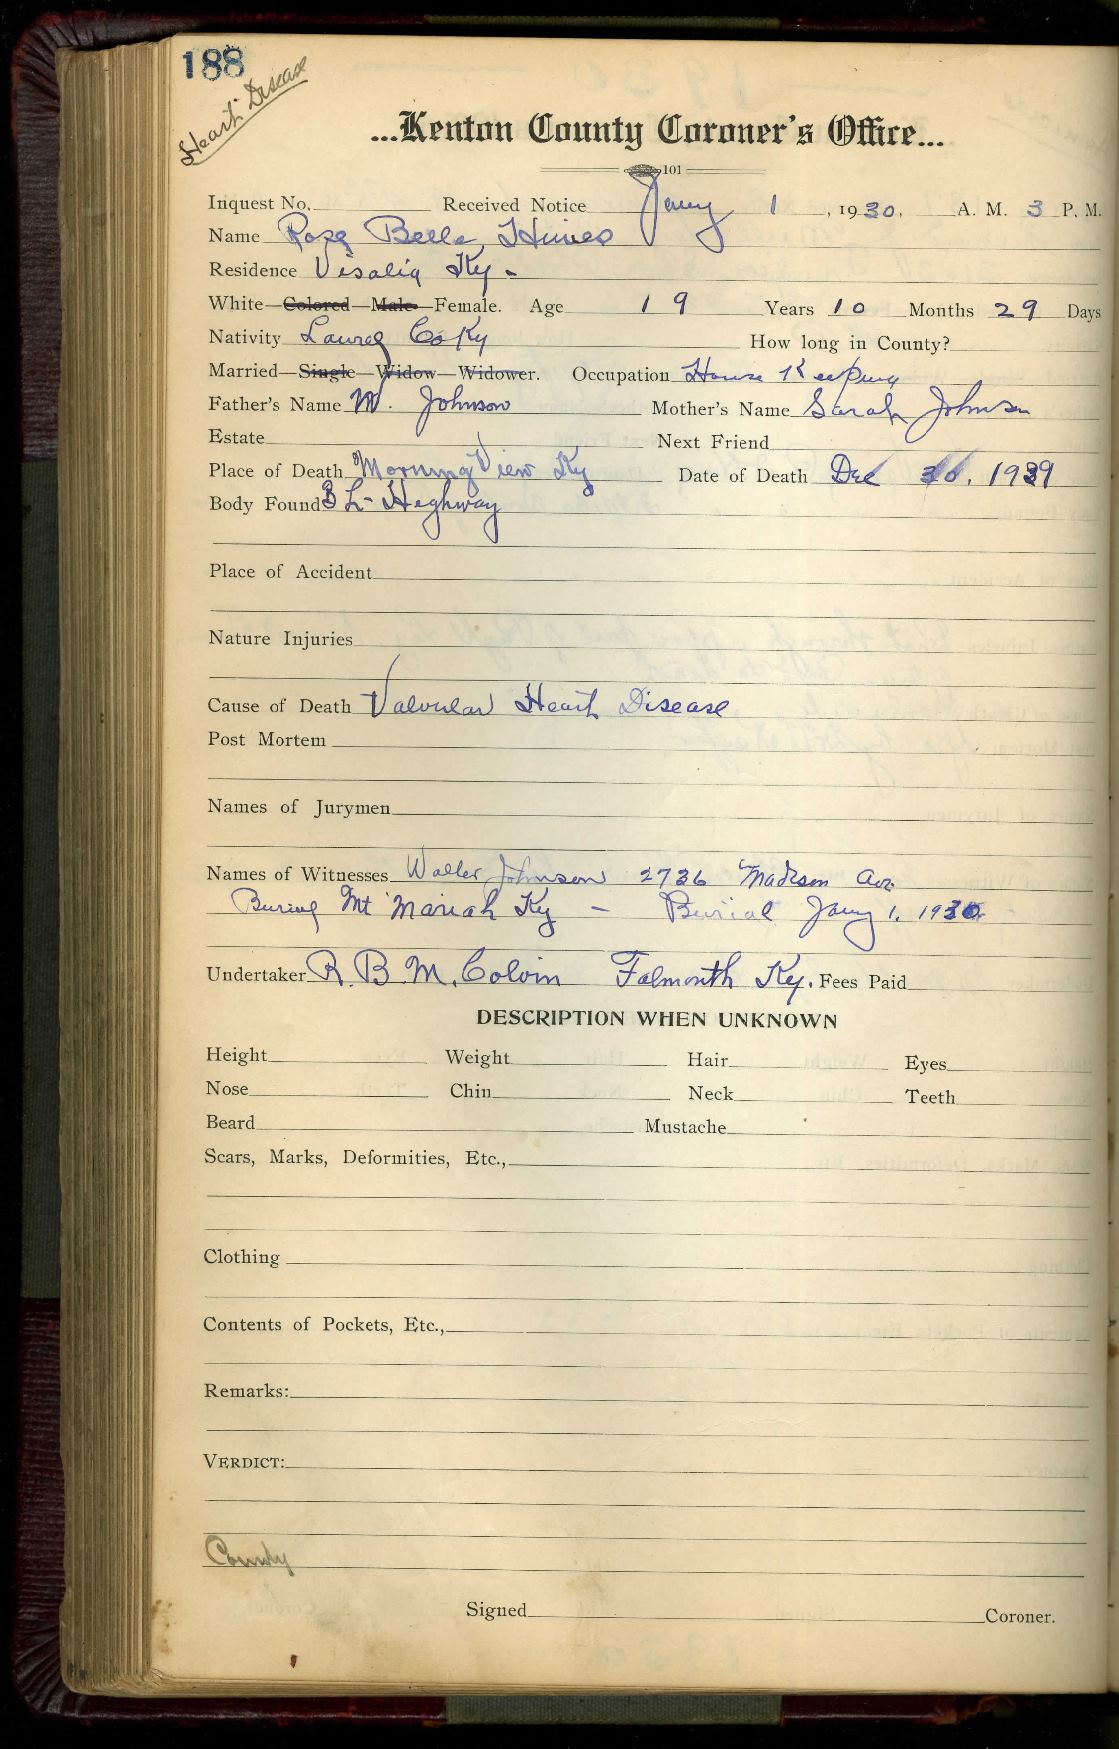 188
Heart Disease
...Kenton County Coroner's Office...
101
Inquest No. Received Notice Jany 1, 1930. A. M. 3 P. M.
Name Rosa Belle Himes
Residence Visalia Ky -
White—Colored—Male—Female. Age 19 Years 10 Months 29 Days
Nativity Laurel Co Ky How long in County?
Married—Single—Widow—Widower. Occupation House Keeping
Father's Name M. Johnson Mother's Name Sarah Johnson
Estate Next Friend
Place of Death Morning View Ky Date of Death Dec 30, 1929
Body Found 3 L- Highway
Place of Accident
Nature Injuries
Cause of Death Valvular Heart Disease
Post Mortem
Names of Jurymen
Names of Witnesses Walter Johnson 2736 Madison Ave
Burial Mt Mariah Ky - Burial Jany 1. 1930
Undertaker R. B. M. Colvin Falmouth Ky. Fees Paid
DESCRIPTION WHEN UNKNOWN
Height Weight Hair Eyes
Nose Chin Neck Teeth
Beard Mustache
Scars, Marks, Deformities, Etc.,
Clothing
Contents of Pockets, Etc.,
Remarks:
VERDICT:
County
Signed Coroner.